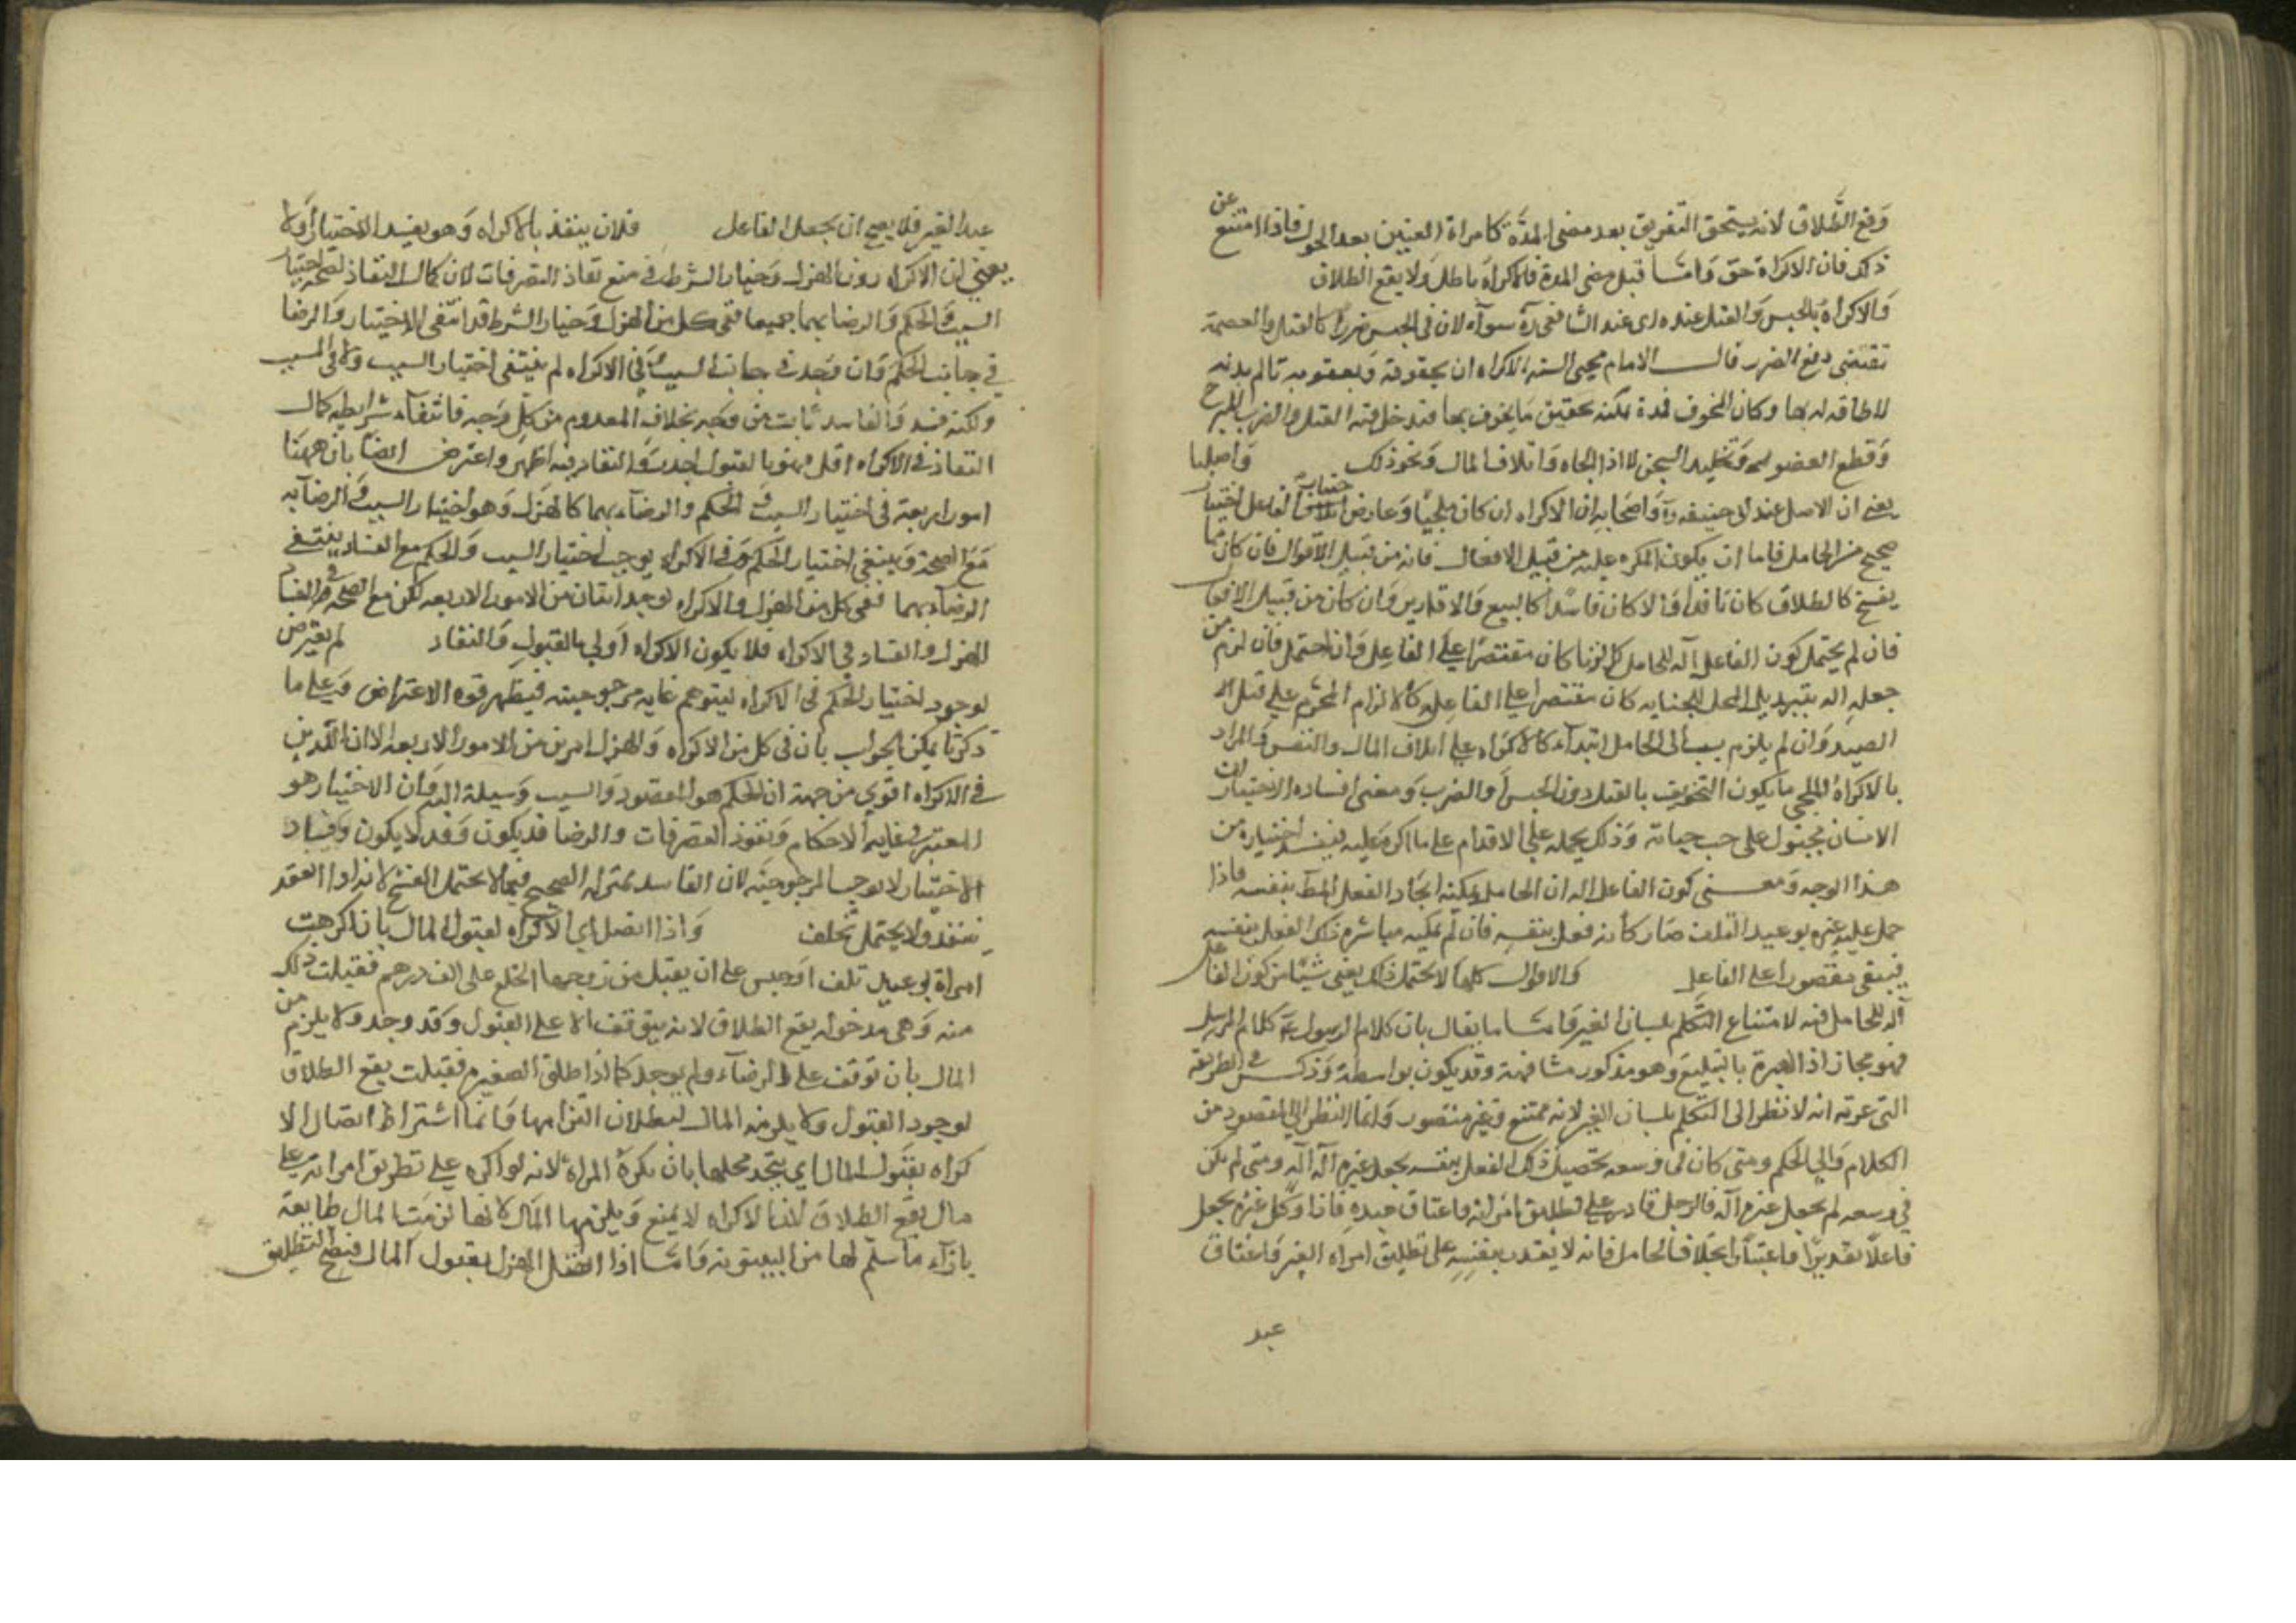 وقع الطلاق لانه يستحق التفريق بعد مضى المدة كامراة العنين بعد الحول فاذا امتنع عن
ذلك فان الاكراه حق وامّا قبل مضى المدة فالاكراه باطل ولا يقع الطلاق
والاكراه بالحبس والقتل عنده اى عند الشافعى ره سوآء لان فى الحبس ضررا كالقتل والعصمة
تقتضى دفع الضرر قال الامام محيى السنه الاكراه ان يخوفه بعقوبة تنال من بدنه
لا طاقه له بها وكان المخوف ممن يمكنه تحقيق ما يخوف بها فتدخل فيه القتل والضرب المبرح
وقطع العضو وتخليد السجن لا اذهاب الجاه واتلاف المال ونحو ذلك واصلنا
يعنى ان الاصل عند ابى حنيفه ره واصحابه ان الاكراه ان كان ملجيا وعارض اختيار الفاعل اختيار
صحيح من الحامل فاما ان يكون المكره عليه من قبيل الافعال فانه من قبيل الاقوال فان كان مما
يفسخ كالطلاق كان نافذا والا كان فاسدا كالبيع والاقارير وان كان من قبيل الافعال
فان لم يحتمل كون الفاعل آلة للحامل كالزنا كان مقتصرا على الفاعل وان احتمل فان لزم من
جعله اله تبديل المحل الجنايه كان مقتصرا على الفاعل كالاكراه المحرم على قتل
الصيد وان لم يلزم ينسب الى الحامل ابتدآء كالاكراه على اتلاف المال والنفس والمراد
بالاكراه الملجى ما يكون التخويف بالقتل دون الحبس والضرب ومعنى افساده الاختيار ان
الانسان مجبول على حب حياته وذلك يحمله على الاقدام على ما اكره عليه فيفسد اختياره من
هذا الوجه ومعنى كون الفاعل اله ان الحامل يمكنه ايجاد الفعل المط بنفسه فاذا
حمل عليه غيره بوعيد التلف صار كأنه فعل بنفسه فان لم يمكنه مباشرة ذلك الفعل بنفسه
فيبقى مقصورا على الفاعل والاقوال كلها لا تحتمل ذلك يعنى شيئا من كون الفاعل
آله للحامل فيه لامتناع التكلم بلسان الغير وامّا ما يقال بان كلام الرسول كلام المرسل
فهو مجاز اذ العبرة بالتبليغ وهو مذكور مشافهة وقد يكون بواسطة وذكر فى الطريقه
التى عرفته انه لا نظر الى التكلم بلسان الغير لانه ممتنع غير متصور وانما النظر الى المقصود من
الكلام والى الحكم ومتى كان فى وسعه تحصيل ذلك الفعل بنفسه يجعل غيره آلة له ومتى لم يكن
فى وسعه لم يجعل غيره آلة فالرجل قادر على تطليق امراته واعتاق عبده فاذا وكل غيره يجعل
فاعلا تقديرا واعتبارا بخلاف الحامل فانه لا يقدر بنفسه على تطليق امراه الغير واعتاق
عبد
عبد الغير فلا يصح ان يجعل الفاعل فلان ينفذ بالاكراه وهو يفسد الاختيار اولا
يعنى ان الاكراه دون الهزل وخيار الشرط فى منع نفاذ التصرفات لان كمال النفاذ لصحة اختيار
السبب والحكم والرضا بهما جميعا ففى كل من الهزل وخيار الشرط قد انتفى الاختيار والرضا
فى جانب الحكم وان وجد فى جانب السبب وفى الاكراه لم ينتفى اختيار السبب ولا فى المسبب
ولكنه فسد والفاسد ثابت من وجه بخلاف المعدوم من كل وجه فانتفآء شرايط كمال
النفاذ فى الاكراه اقل فهو بالقبول اجدر والنفاد فيه اظهر واعترض ايضا بان ههنا
امورا اربعة فى اختيار السبب والحكم والرضآء بهما كالهزل وهو اختيار السبب والرضا به
مع الصحة وينتفى اختيار الحكم وفى الاكراه يوجد اختيار السبب والحكم مع الفساد ينتفى
الرضاء بهما ففى كل من الهزل والاكراه يوجد اثنان من الامور الاربعه لكن مع الصحه فى
الهزل والفساد فى الاكراه فلا يكون الاكراه اولى بالقبول والنفاد لم يعترض
لوجود اختيار الحكم فى الاكراه ليتوهم غايه مرجوحيته فيظهر قوه الاعتراض وعلى ما
ذكرنا يمكن الجواب بان فى كل من الاكراه والهزل امرين من الامور الاربعه الا ان الذين
فى الاكراه اقوى من جهة ان الحكم هو المقصود والسبب وسيلة اليه وان الاختيار هو
المعتبر فى غاية الاحكام ونفوذ التصرفات والرضا قد يكون وقد لا يكون وفساد
الاختيار لا يوجب المرجوحية لان الفاسد بمنزلة الصحيح فيما لا يحتمل الفسخ لانه اذا انعقد
ينفذ ولا يحتمل تخلف واذا اتصل اى الاكراه لقبول المال بان اكرهت
امراة بوعيد تلف او حبس على ان يقبل من زوجها الخلع على الف درهم فقبلت ذلك
منه وهى مدخوله يقع الطلاق لانه يتوقف الا على القبول وقد وجد ولا يلزم من
المال بان توقف على الرضآء ولم يوجد كما اذا طلق الصغيره فقبلت يقع الطلاق
لوجود القبول ولا يلزمه المال لبطلان التزامها وانما اشتراط اتصال الا
كراه بقبول المال اى يتحد محلها بان يكره المراة لانه لو اكره على تطليق امراته على
مال يقع الطلاق لان الاكراه لا يمنع ويلزمها المال لانها لزمت المال طايعة
بازآء ما سلم لها من البينونه وامّا اذا اتصل الهزل بقبول المال فيصح التطليق